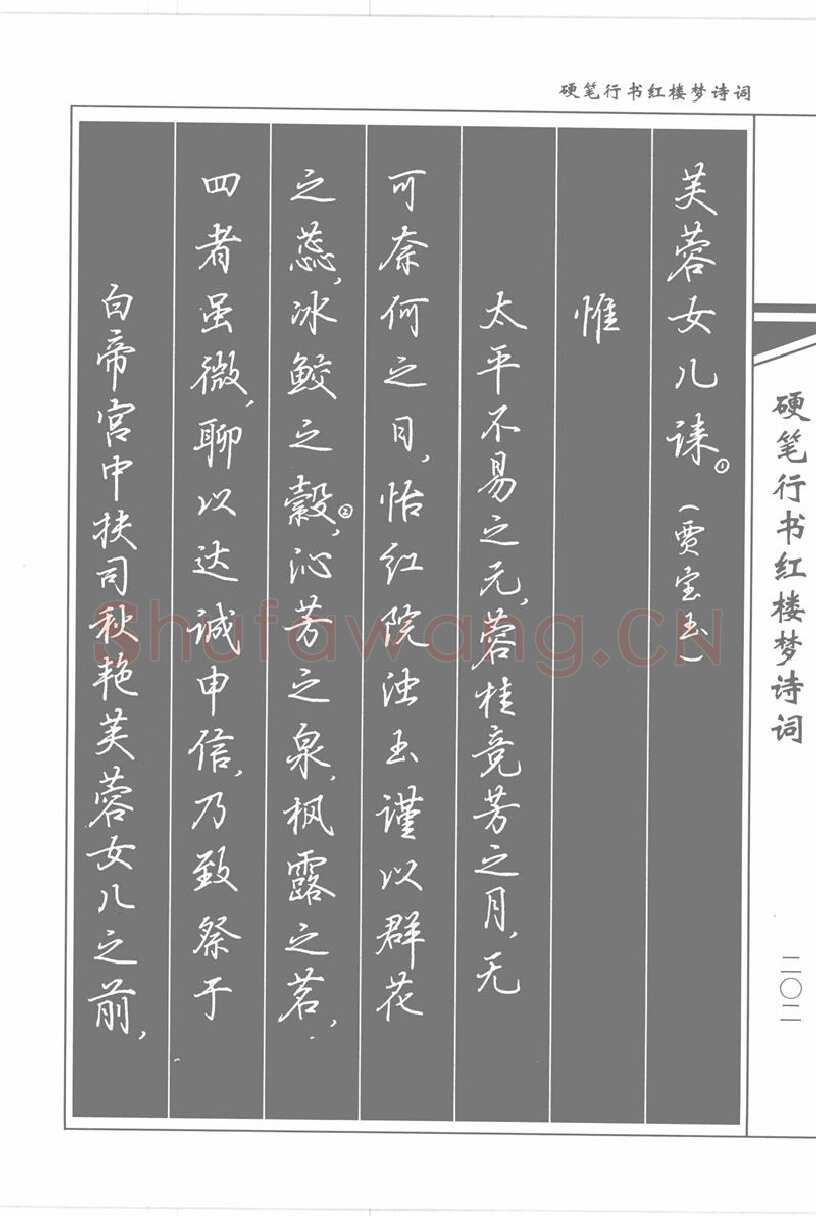 硬笔行书红楼梦诗词
芙蓉女儿诔①（贾宝玉）
惟
太平不易之元，蓉桂竞芳之月，无
可奈何之日，怡红院浊玉谨以群花
之蕊，冰鲛之縠②，沁芳之泉，枫露之茗，
四者虽微，聊以达诚申信，乃致祭于
白帝宫中扶司秋艳芙蓉女儿之前，
硬笔行书红楼梦诗词
二〇二
Shufawang.CN